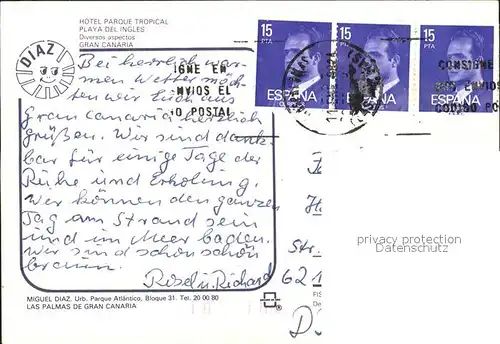 HOTEL PARQUE TROPICAL
PLAYA DEL INGLES
Diversos aspectos
GRAN CANARIA
DIAZ
15
PTA
ESPAÑA
CORREOS
15
PTA
ESPAÑA
15
PTA
ESPAÑA
IGNE EN
NVIOS EL
O POSTAL
CONSIGNE
SUS ENVIOS
CODIGO PO
Bei herrlich war-
men Wetter möch-
ten wir Euch aus
Gran Canaria herzlich
grüßen. Wir sind dank-
bar für einige Tage der
Ruhe und Erholung.
Wir können den ganzen
Tag am Strand sein
und im Meer baden.
Wir sind schon schön
braun.
Rosel u. Richard
Str.
621
D
privacy protection
for Delcampe
MIGUEL DIAZ. Urb. Parque Atlántico, Bloque 31. Tel. 20 00 80
LAS PALMAS DE GRAN CANARIA